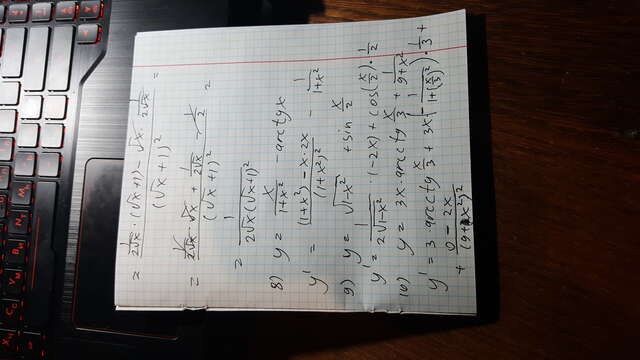 Х Н
С C
М V
И B
Т N
Ь M
= (1/(2√x) · (√x + 1) - √x · 1/(2√x)) / (√x + 1)² =
= (1/(2√x) · √x + 1/(2√x) - 1/2) / (√x + 1)² =
= 1/(2√x(√x+1)²)
8) y = x/(1+x²) - arcctg x
y' = ((1+x²) - x·2x)/(1+x²)² - 1/(1+x²)
9) y = √(1-x²) + sin x/2
y' = 1/(2√(1-x²)) · (-2x) + cos(x/2) · 1/2
10) y = 3x · arcctg x/3 + 1/(9+x²)
y' = 3 · arcctg x/3 + 3x(-1/(1+(x/3)²)) · 1/3 +
+ (0 - 2x)/(9+x²)²